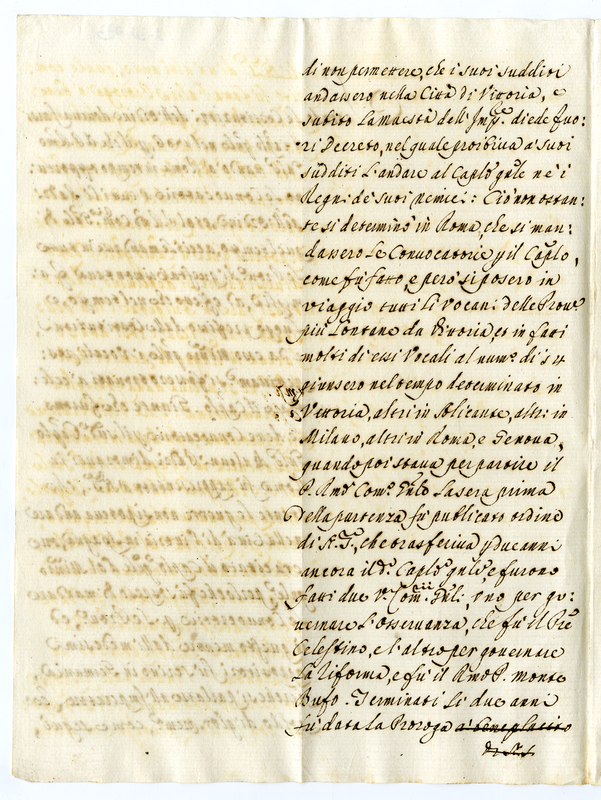 di non permettere, che i suoi sudditi
andassero nella Città di Vittoria, e
subito La Maestà dell'Impre. diede fuo:
ri Decreto, nel quale proibiva a' suoi
sudditi L'andare al Caplo gnle ne' i
Regni de' suoi nemici: Ciò non ostan:
te si determinò in Roma, che si man:
dassero Le Convocatorie p il Caplo,
come fù fatto, e però si posero in
viaggio tutti Li Vocali delle Prove
più Lontane da Vittoria, et in fatti
molti di essi Vocali al numo di 54
giunsero nel tempo determinato in
Vittoria, altri in Alicante, altri in
Milano, altri in Roma, e Genova,
quando poi stava per partire il
P. Rmo Como Gnle La sera prima
della partenza fù publicato ordine
di N. S. che trasferiva p due anni
ancora il do Caplo gnle, e furono
fatti due Vi Comii Gnli, uno per go:
vernare L'Osservanza, che fù il Pre
Celestino, e l'altro per governare
La Riforma, e fù il Rmo P. Monte
Bufo. Terminati Li due anni
fù data La Proroga a' beneplacito
di N. S.